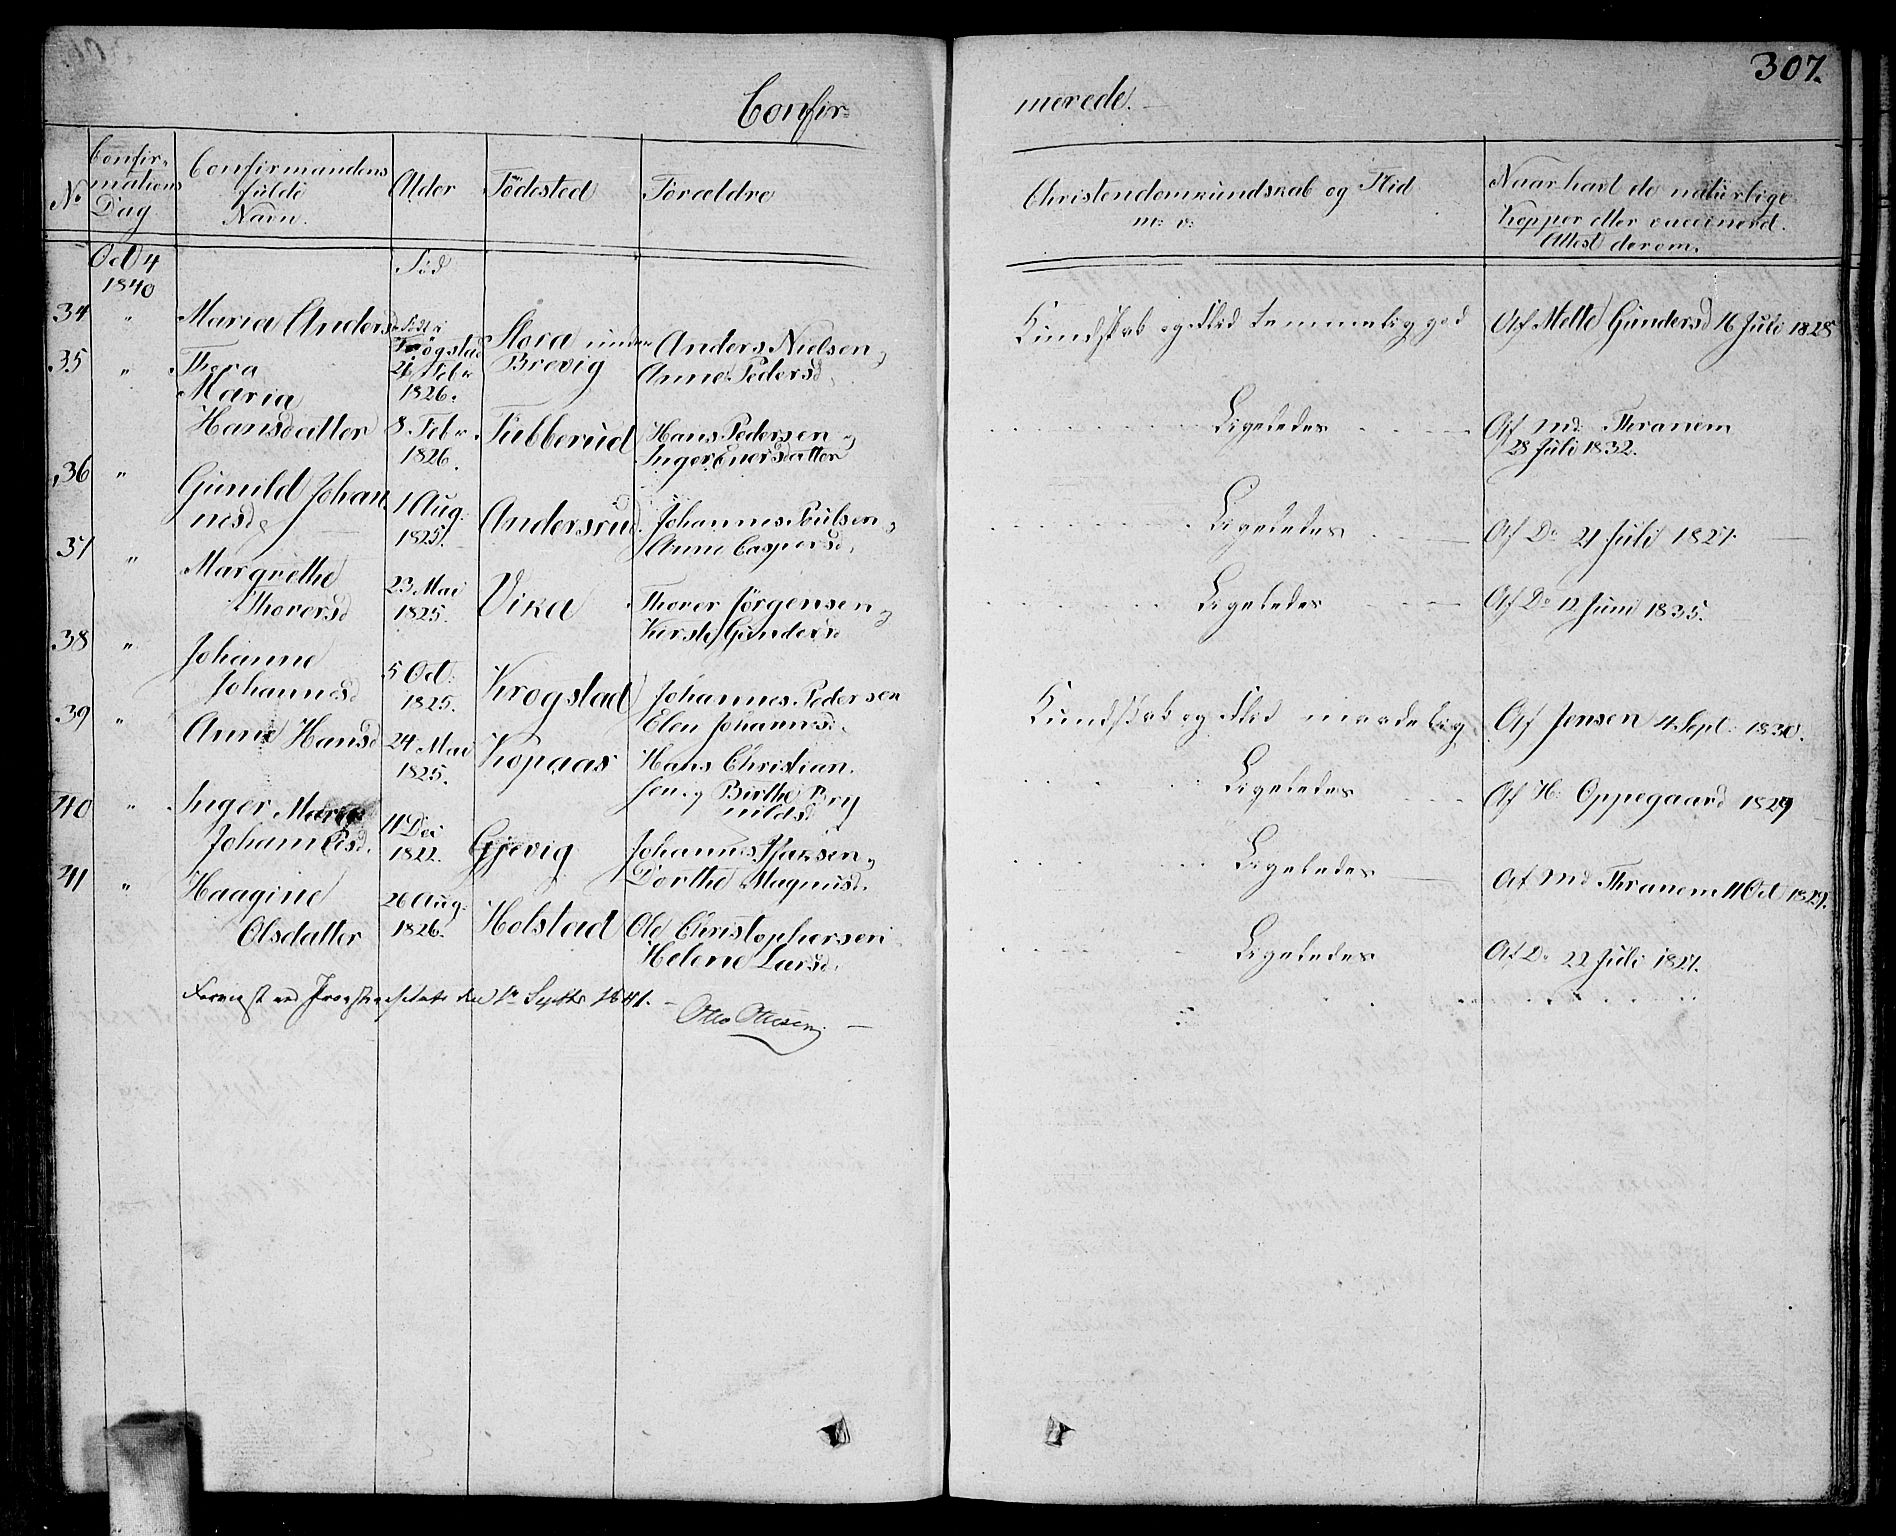 307.
Confir=
merede.
No
Confir=
mations
Dag.
Confirmandens
fulde
Navn.
Alder
Födested
Forældre
Christendomskundskab og Flid
m: v:
Naar havt de naturlige
Kopper eller vaccinered.
Attest derom.
Oct 4
1840
Fød
34 " Maria Andersd
Födt i
Krogstad
21 Febr
1826.
Stora under
Brevig
Anders Nielsen og
Anne Pedersd.
Kundskab og Flid temmelig god
Af Mette Gundersd 16 Juli 1828
35 " Thora
Maria
Hansdatter
8 Febr.
1826.
Tubberud
Hans Pedersen og
Inger Enersdatter
Ligeledes
Af Md: Thranem
28 Juli 1832.
36 " Gunild Johan
nesd
1 Aug:
1825.
Andersrud.
Johannes Poulsen og
Anne Caspersd.
Ligeledes
Af Do 21 Juli 1827.
37 " Margrethe
Thoversd
23 Mai
1825.
Vika
Thover Jörgensen og
Kirsti Gundersd
Ligeledes
Af Do 12 Juni 1835.
38 " Johanne
Johannesd
5 Oct:
1825.
Krogstad
Johannes Pedersen
Elen Johannesd.
Kundskab og Flid maadelig
Af Jensen 4 Sept: 1830.
39 " Anne Hansd
24 Mai
1825.
Kopaas
Hans Christian.
sen og Birthe Bry
nildsd
Ligeledes
Af H. Oppegaard 1829
40 " Inger Marie
Johannesd.
11 Dec
1822.
Gjevig
Johannes Isaksen og
Dorthe Magnusd.
Ligeledes
Af Md Thranem 11 Oct 1827.
41 " Haagine
Olsdatter
26 Aug:
1826.
Holstad
Ole Christophersen
Helene Larsd.
Ligeledes
Af Do 22 Juli 1827.
Forevist ved Provstevisitats den 1ste Septbr 1841. –
Otto Ottesen